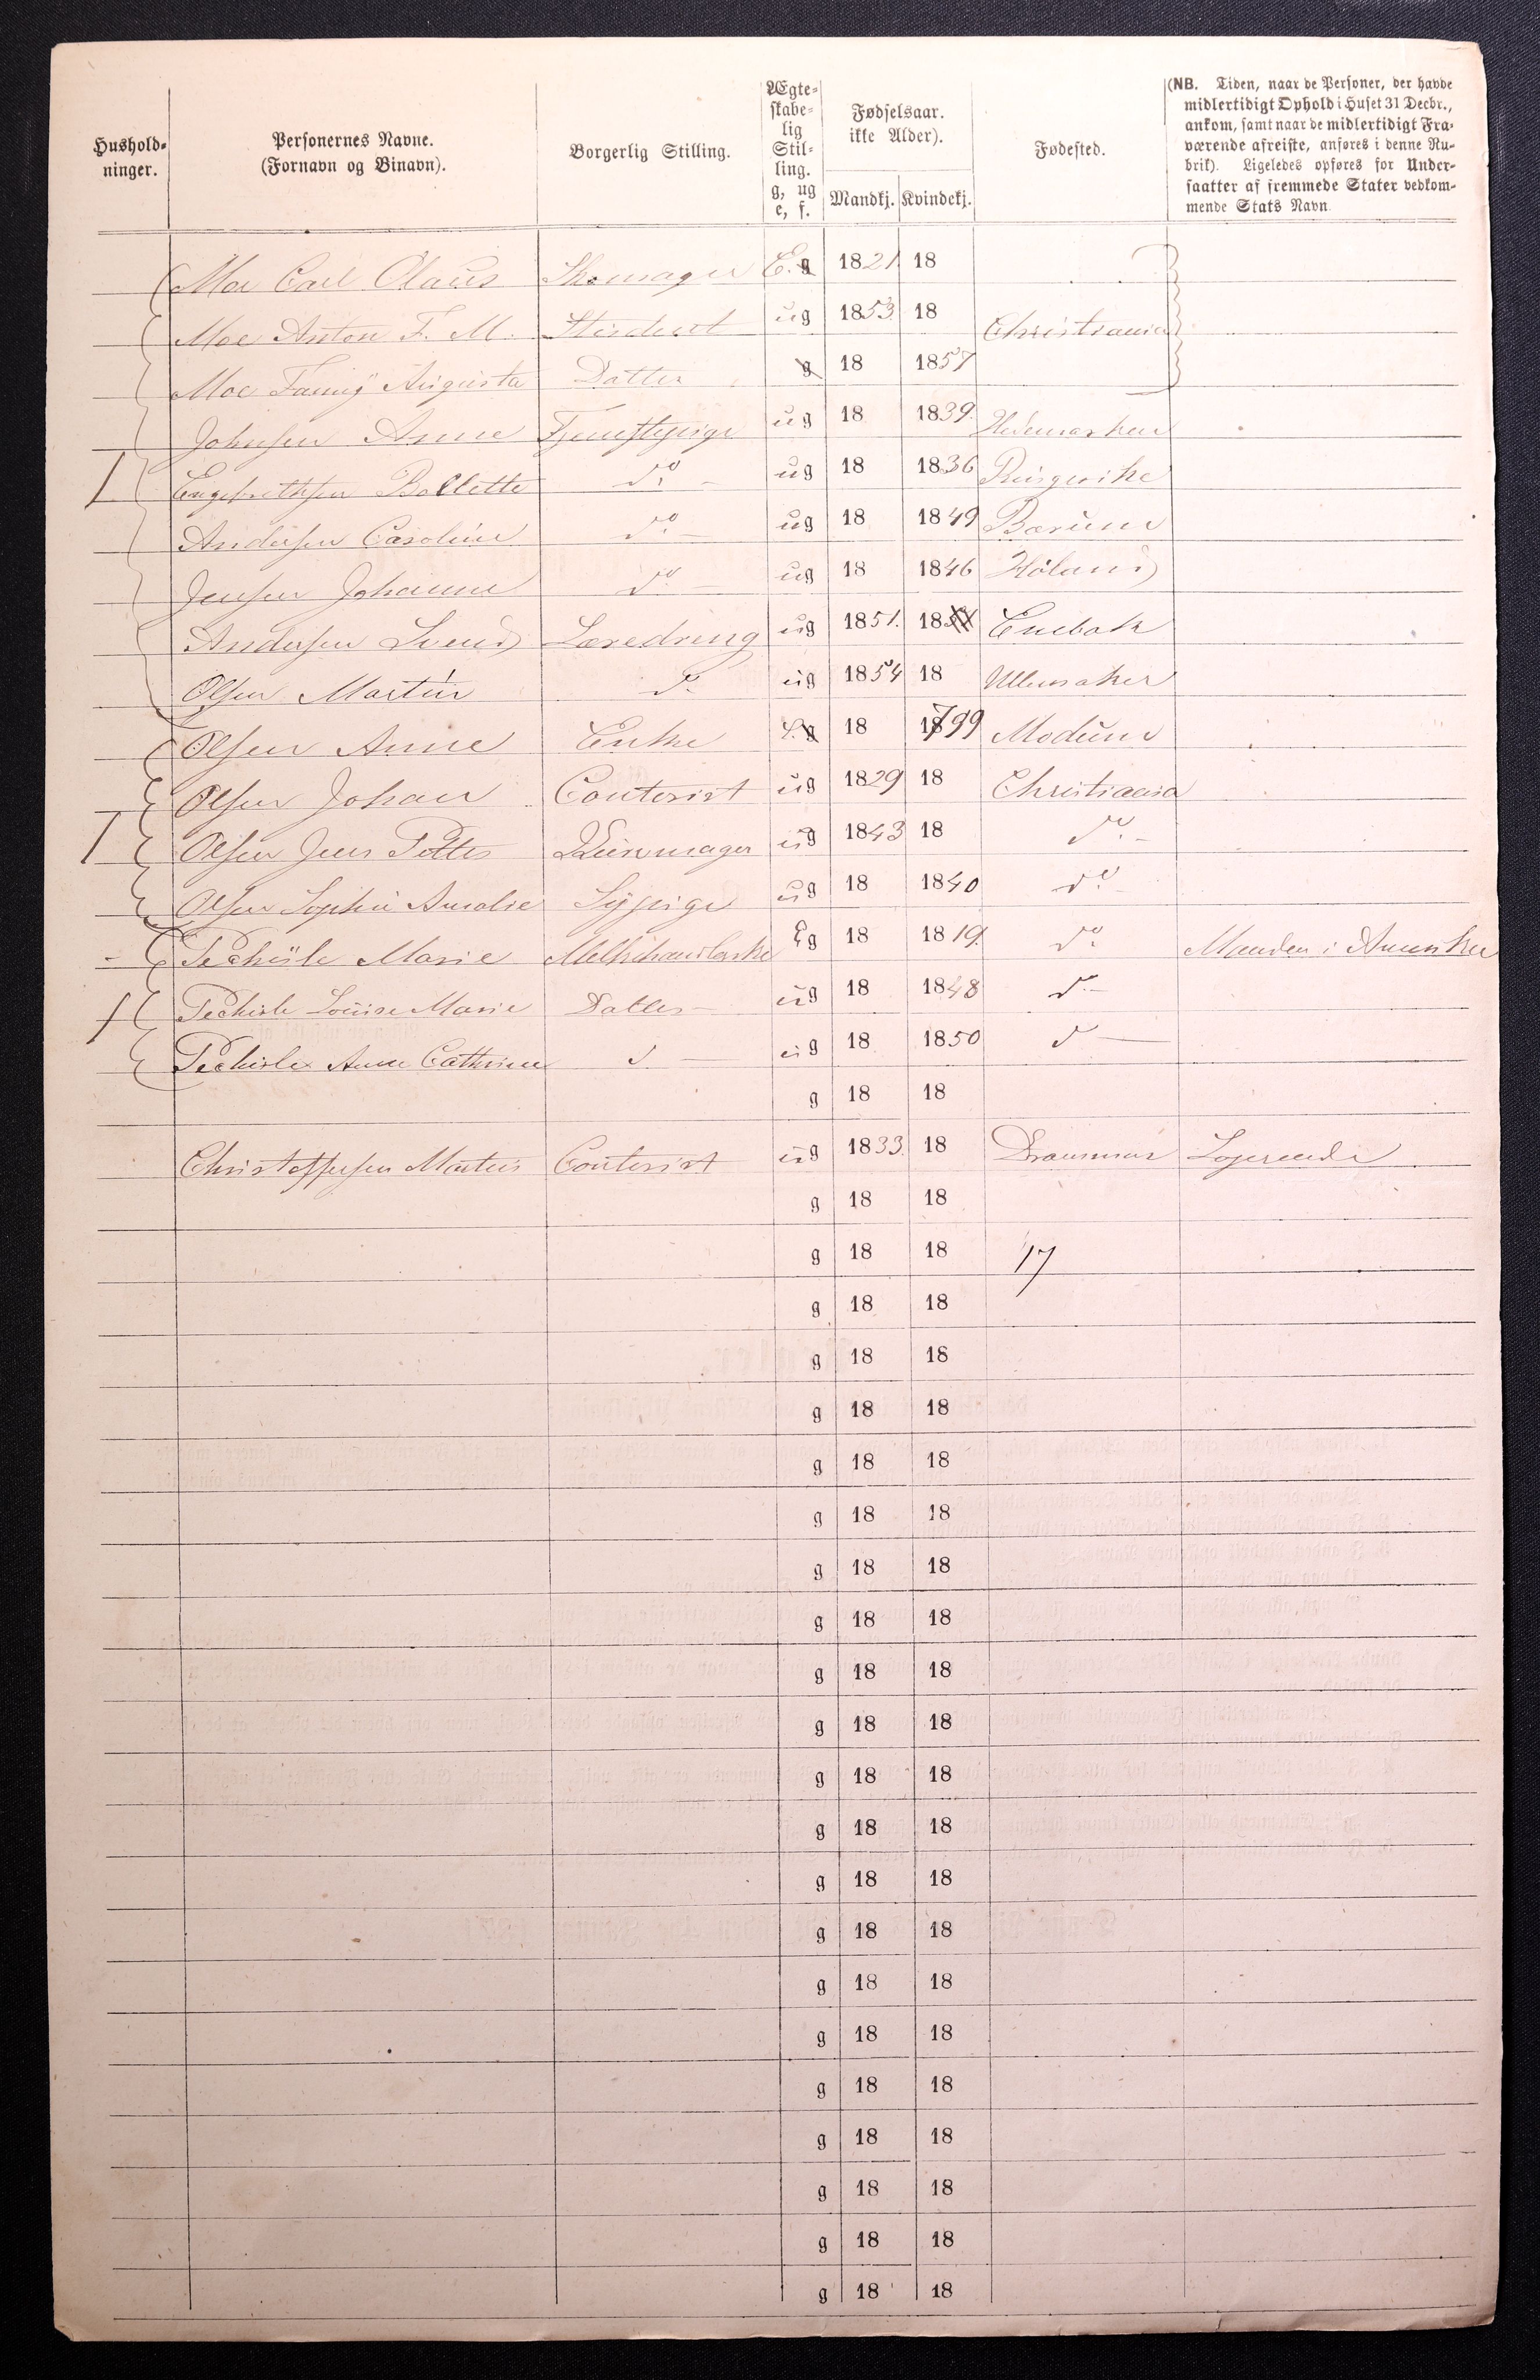 Hushold-
ninger.
Personernes Navne.
(Fornavn og Binavn).
Borgerlig Stilling.
Ægte-
skabe-
lig
Stil-
ling.
g, ug
e, f.
Fødselsaar.
ikke Alder).
Mandkj. Kvindekj.
Fødested.
(NB. Tiden, naar de Personer, der havde
midlertidigt Ophold i Huset 31 Decbr.,
ankom, samt naar de midlertidigt Fra-
værende afreiste, anføres i denne Ru-
brik). Ligeledes opføres for Under-
saatter af fremmede Stater vedkom-
mende Stats Navn
Moe Carl Olaus Skomager E. g 1821 18
Moe Anton F. M. Student ug 1853 18 Christiania
Moe Fanny Augusta Datter g 18 1857
Johnsen Anne Tjenestepige ug 18 1839. Hedemarken
Engebrethsen Bollette do ug 18 1836 Ringerike
Andersen Caroline do ug 18 1849 Bærum
Jensen Johanne do ug 18 1846 Höland
Andersen Svend Læredreng ug 1851. 18 Enebak
Olsen Martin d. ug 1854 18 Ullensaker
Olsen Anne Enke E. g 18 1799 Modum
Olsen Johan Contorist ug 1829 18 Christiania
Olsen Jens Petter ug 1843 18 do
Olsen Sophie Amalie Sypige ug 18 1840 do
Marie Melkehandlerske Eg 18 1819. do Manden i Amerika
Louise Marie Datter ug 18 1848 d.
Anne Cathrine d ug 18 1850 d
g 18 18
Christoffersen Martin Contorist ug 1833. 18 Drammen Logerende
g 18 18
g 18 18 17
g 18 18
g 18 18
g 18 18
g 18 18
g 18 18
g 18 18
g 18 18
g 18 18
g 18 18
g 18 18
g 18 18
g 18 18
g 18 18
g 18 18
g 18 18
g 18 18
g 18 18
g 18 18
g 18 18
g 18 18